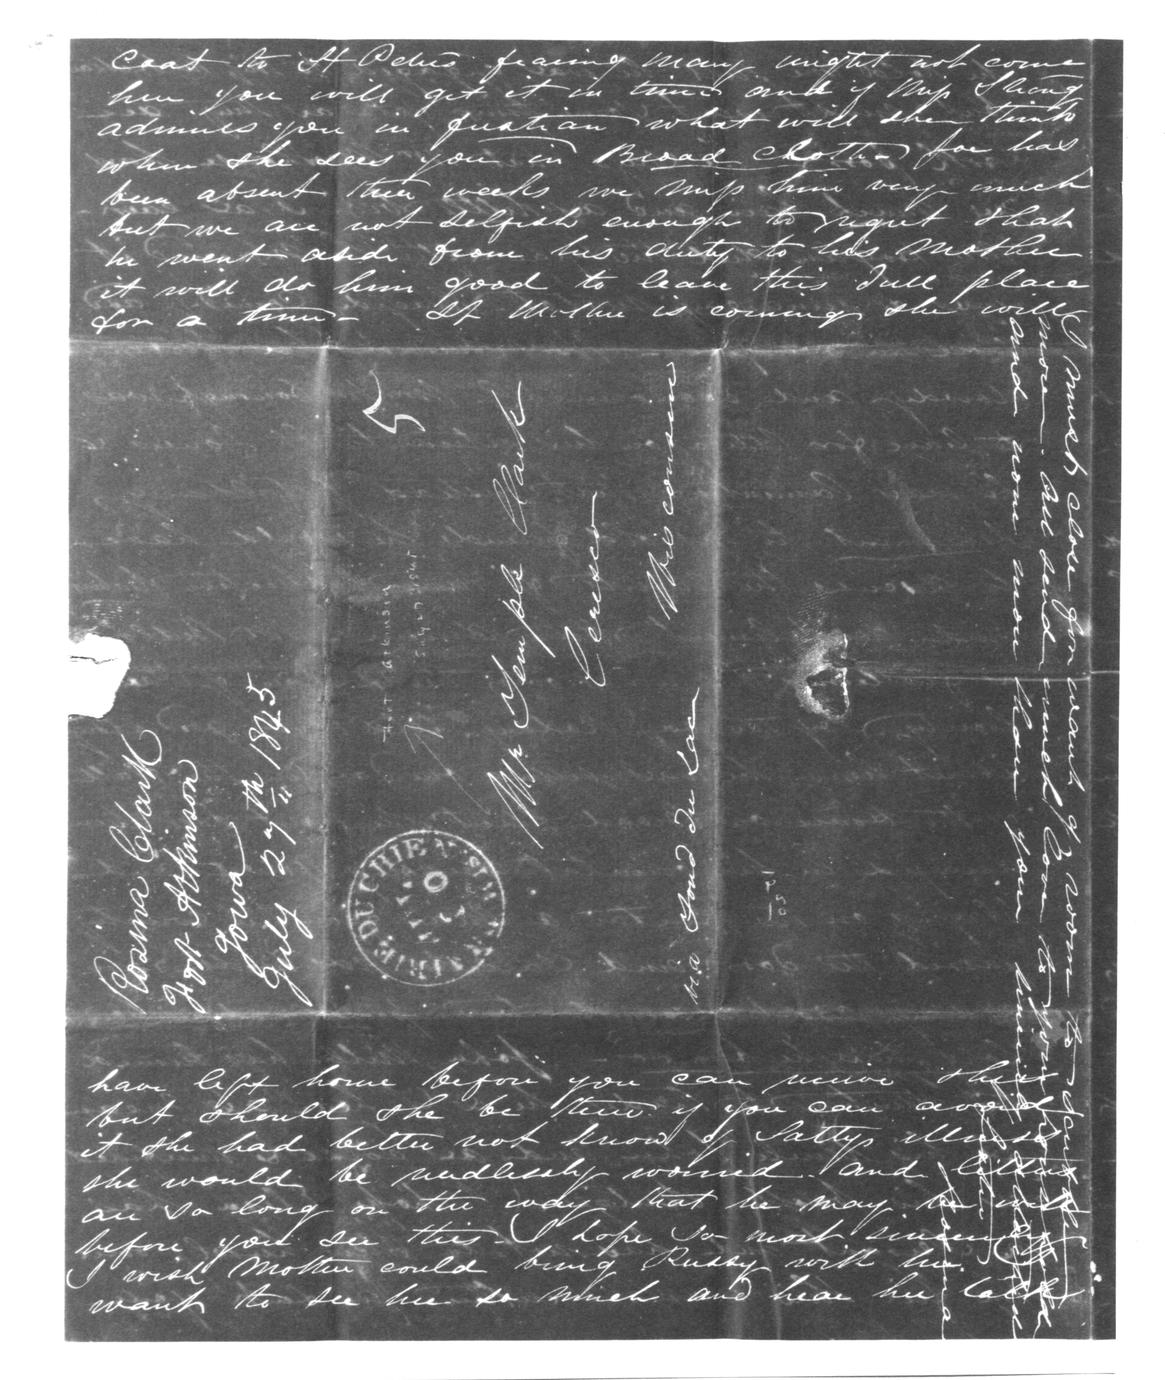 coat to St Peters fearing Mary might not come
here you will get it in time and if Miss Strong
admires you in fustian what will she think
when she sees you in Broad Cloth - Joe has
been absent three weeks we miss him very much
but we are not selfish enough to regret that
he went aside from his duty to his Mother
it will do him good to leave this dull place
for a time - If Mother is coming she will
have left home before you can receive this
but should she be there if you can avoid
it she had better not know of Sattys illness
she would be needlessly worried and letters
are so long on the way that he may be well
before you see this - I hope so most sincerely
I wish Mother could bring Russy with her
want to see her so much and hear her talk
I must close for want of room to
more. All send much love to you
and none more than your
Sister
Rosina
5
Mr Temple Clark
Ceresco
Wisconsin
via Fond du Lac
Fort Atkinson
July 27 1845
PRAIRIE DU CHIEN WIS
Rosina Clark
Fort Atkinson
Iowa
July 27th 1845